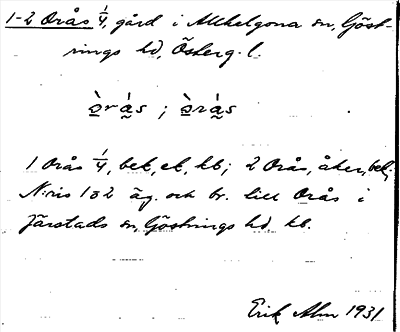 1-2 Orås 1/4, gård i Allhelgona sn, Göst-
rings hd, Österg. l.
o̱̊̀rá̰s ; o̱̊̀rá̰s
1 Orås 1/4, bet, et, kb; 2 Orås, åker, bel;
N:ris 1 o 2 äg. och br. till Orås i
Järstads sn, Göstrings hd kb.
Erik Alm 1931